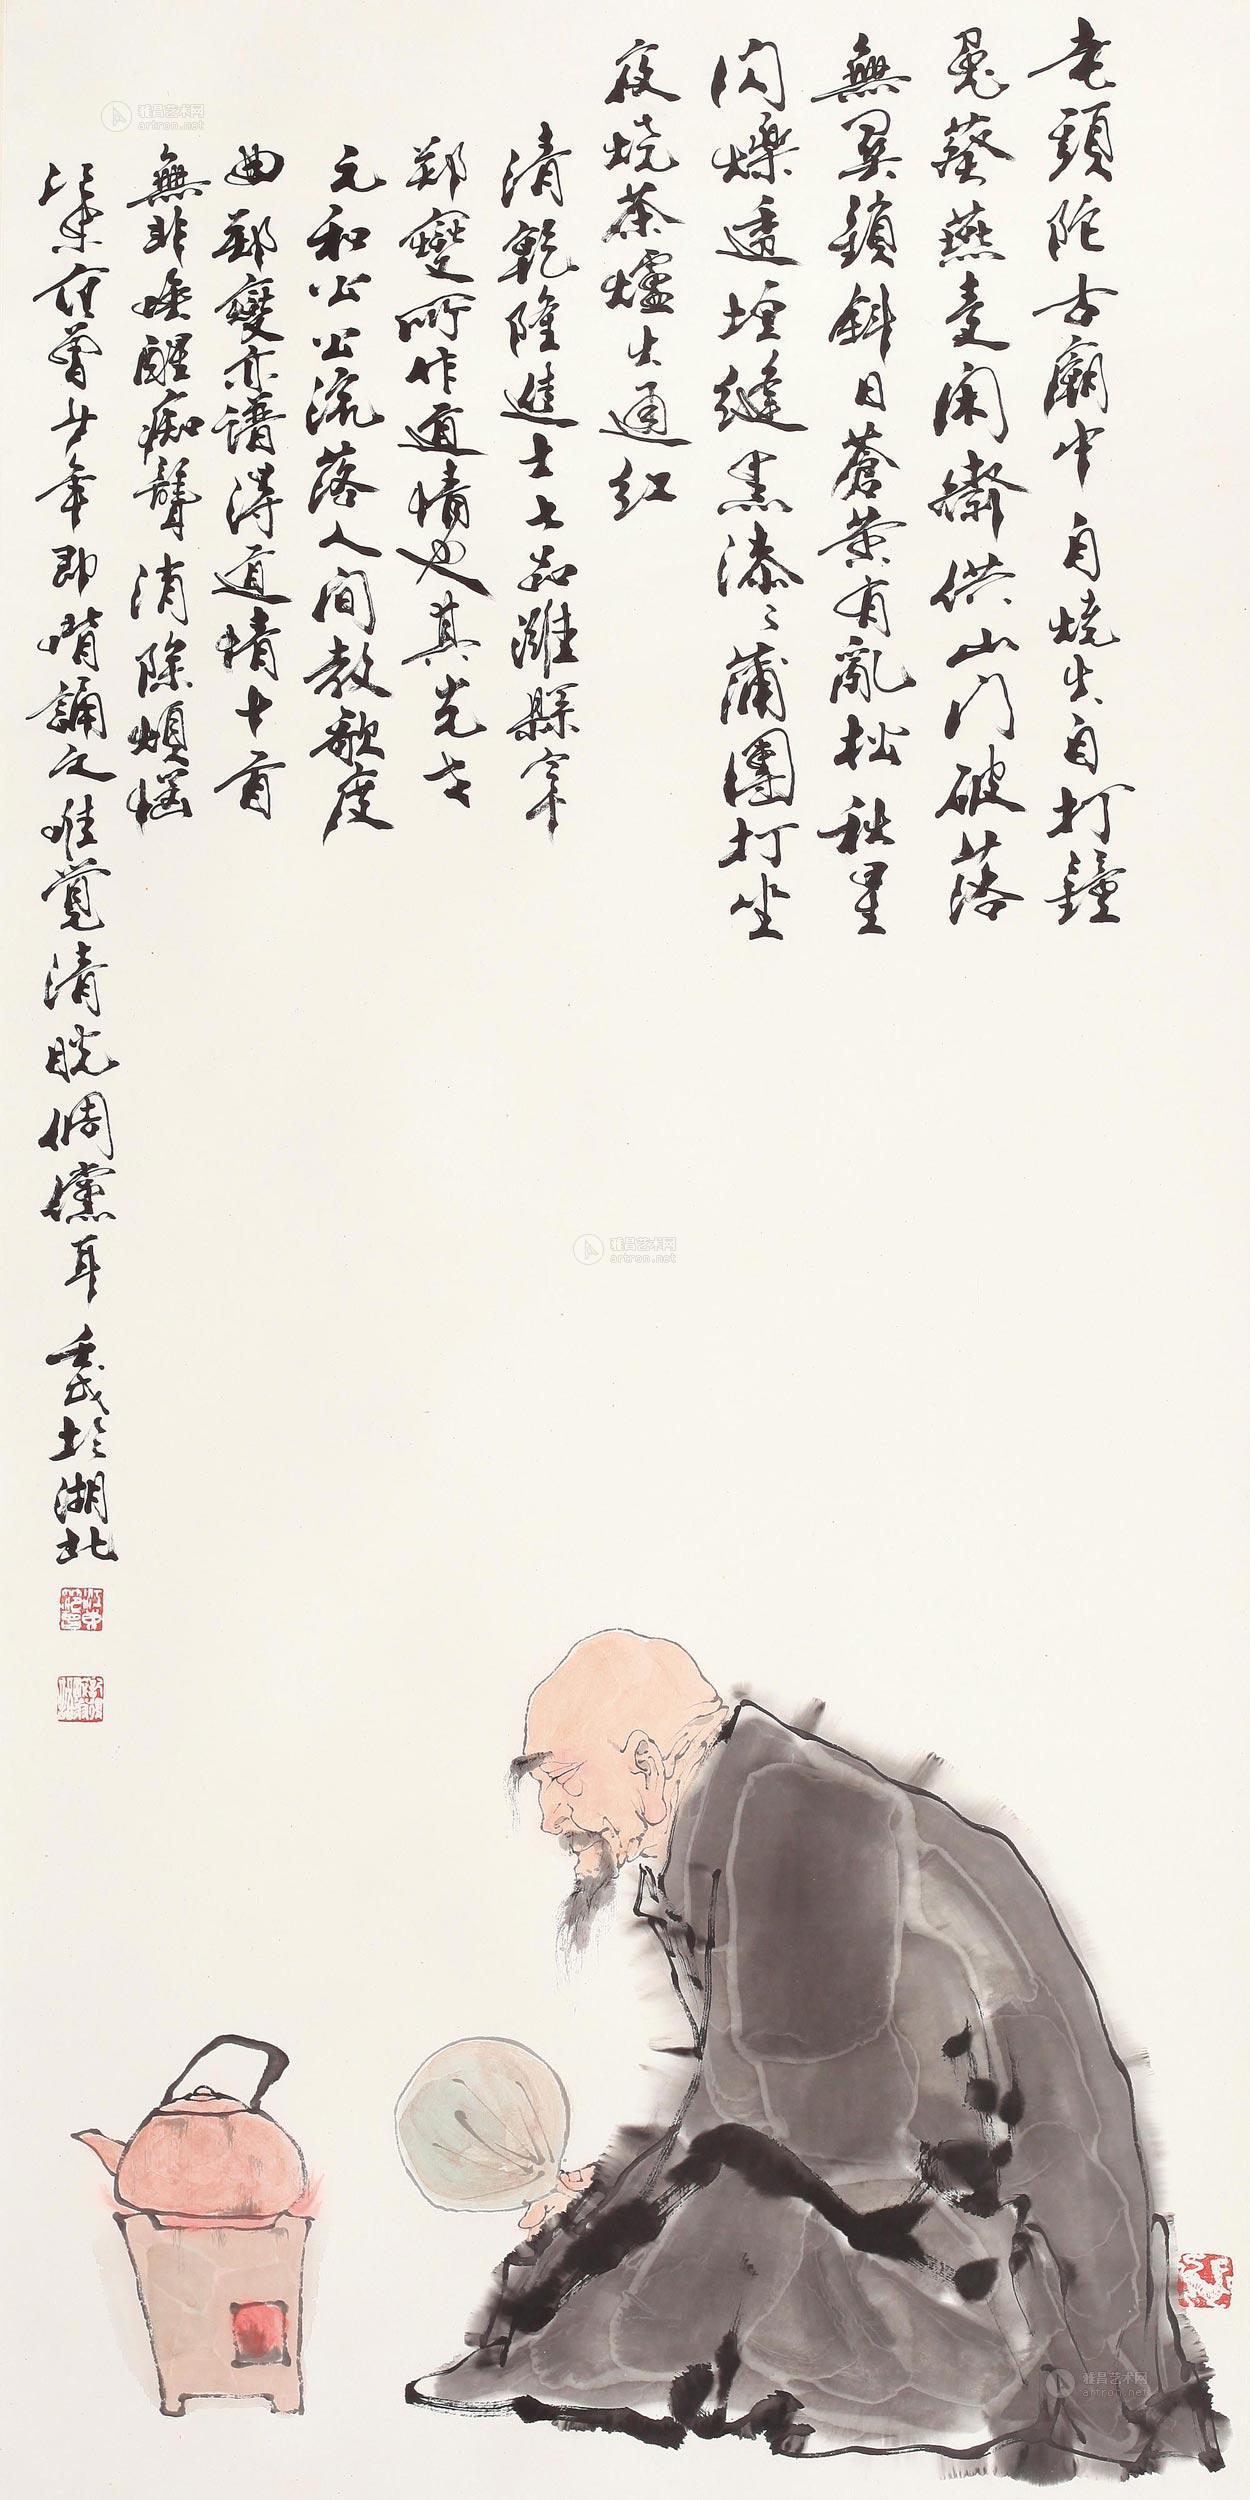 老頭陀古廟中自燒火自打鐘
兔葵燕麥閑齋供山門破落
無関鎖斜日蒼黃有亂松秋星
閃爍透垣縫黑漆〻蒲團打坐
夜燒茶爐火通紅
清乾隆進士七品濰縣宰
鄭燮所作道情也其先世
元和公公流落人間教歌度
曲鄭燮亦譜得道情十首
無非喚醒癡聾消除煩惱
江東范曾少年即喈誦之唯覺清曠倜儻耳壬戌於湖北
雅昌艺术网
artron.net
雅昌艺术网
artron.net
雅昌艺术网
artron.net